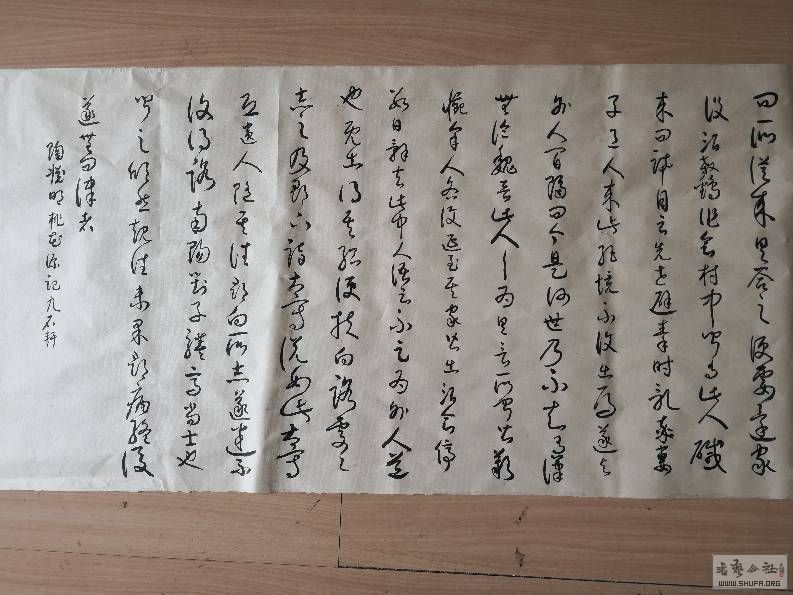 问所从来具答之便要还家
设酒杀鸡作食村中闻有此人咸
来问讯自云先世避秦时乱率妻
子邑人来此绝境不复出焉遂与
外人间隔问今是何世乃不知有汉
无论魏晋此人一一为具言所闻皆叹
惋余人各复延至其家皆出酒食停
数日辞去此中人语云不足为外人道
也既出得其船便扶向路处处
志之及郡下诣太守说如此太守
即遣人随其往寻向所志遂迷不
复得路南阳刘子骥高尚士也
闻之欣然规往未果寻病终后
遂无问津者
陶渊明桃花源记九石轩
书艺公社
WWW.SHUFA.ORG